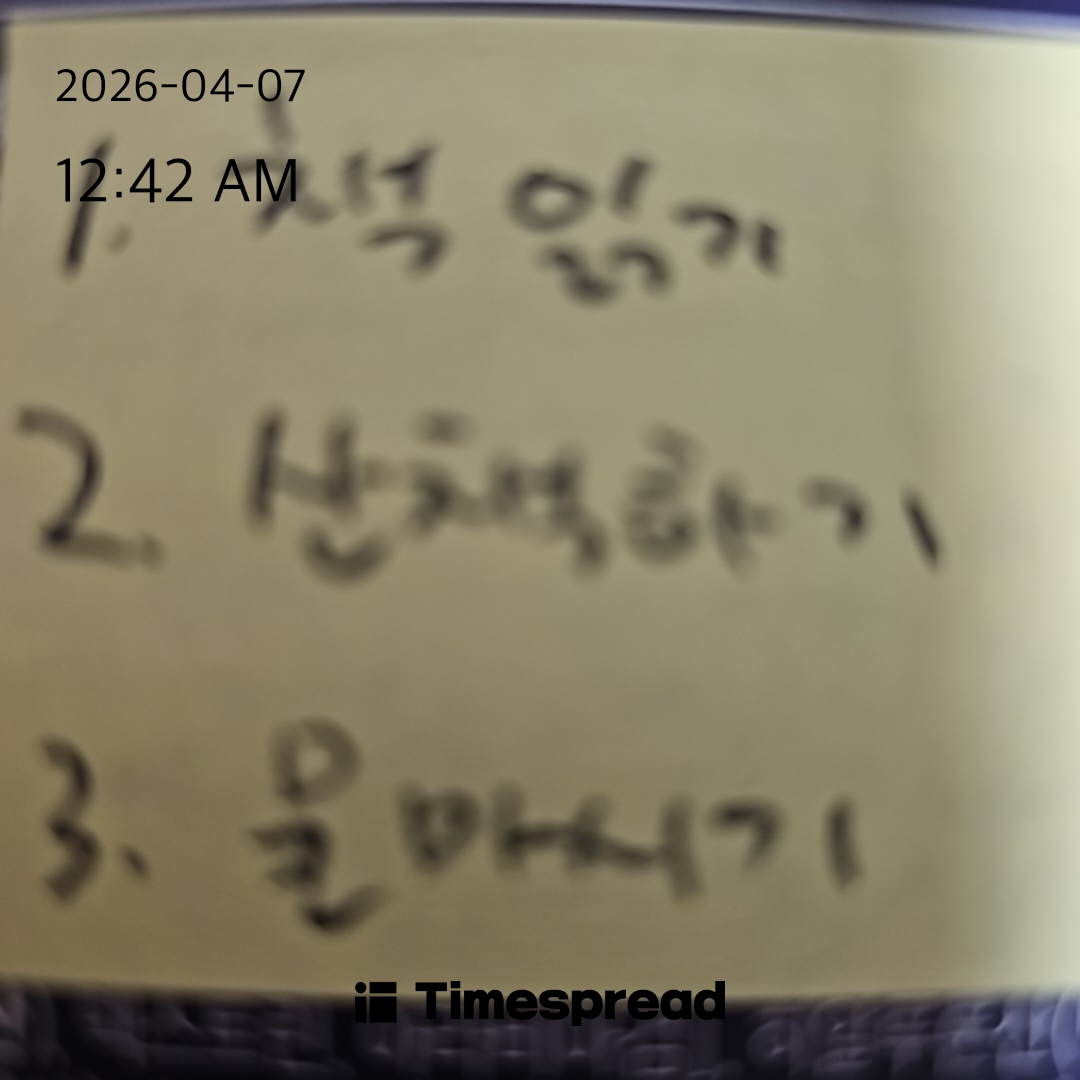 2026-04-07
12:42 AM
1. 책 읽기
2. 산책하기
3. 물 마시기
Timespread